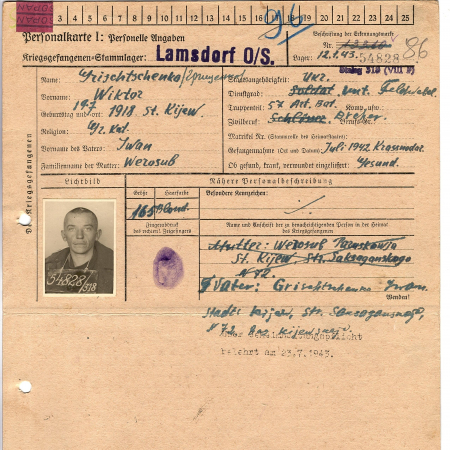 1 2 3 4 5 6 7 8 9 10 11 12 13 14 15 16 17 18 19 20 21 22 23 24 25
Personalkarte I: Personelle Angaben
Beschriftung der Erkennungsmarke
Kriegsgefangenen-Stammlager: Lamsdorf O/S.
Nr. 54828
86
Lager: 12.2.43.
Stalag 318 (VIII F)
Des Kriegsgefangenen
Name: Grischtschenko
Staatsangehörigkeit: Ukr.
Vorname: Wiktor
Dienstgrad: Soldat Unt. Feldwebel
Geburtstag und -ort: 19.7 1918 St. Kijew
Truppenteil: 5x Art. Bat.
Religion:
Zivilberuf: Schlosser Dreher
Vorname des Vaters: Iwan
Matrikel Nr. (Stammrolle des Heimatstaates):
Gefangennahme (Ort und Datum): Juli 1942 Krasnodar
Familienname der Mutter: Werosuß
Ob gesund, krank, verwundet eingeliefert: Gesund.
Lichtbild
Nähere Personalbeschreibung
Größe
Haarfarbe
Besondere Kennzeichen:
165 Blond.
Fingerabdruck
des rechten Zeigefingers
Name und Anschrift der zu benachrichtigenden Person in der Heimat
des Kriegsgefangenen
54828
318
Mutter: Werosuß Paraskowia
St. Kijew Str. Saksaganskogo
N 72.
Vater: Grischtschenko Iwan.
Wenden!
Stadt Kijew, Str.
N 72
belehrt am 23.7.1943.